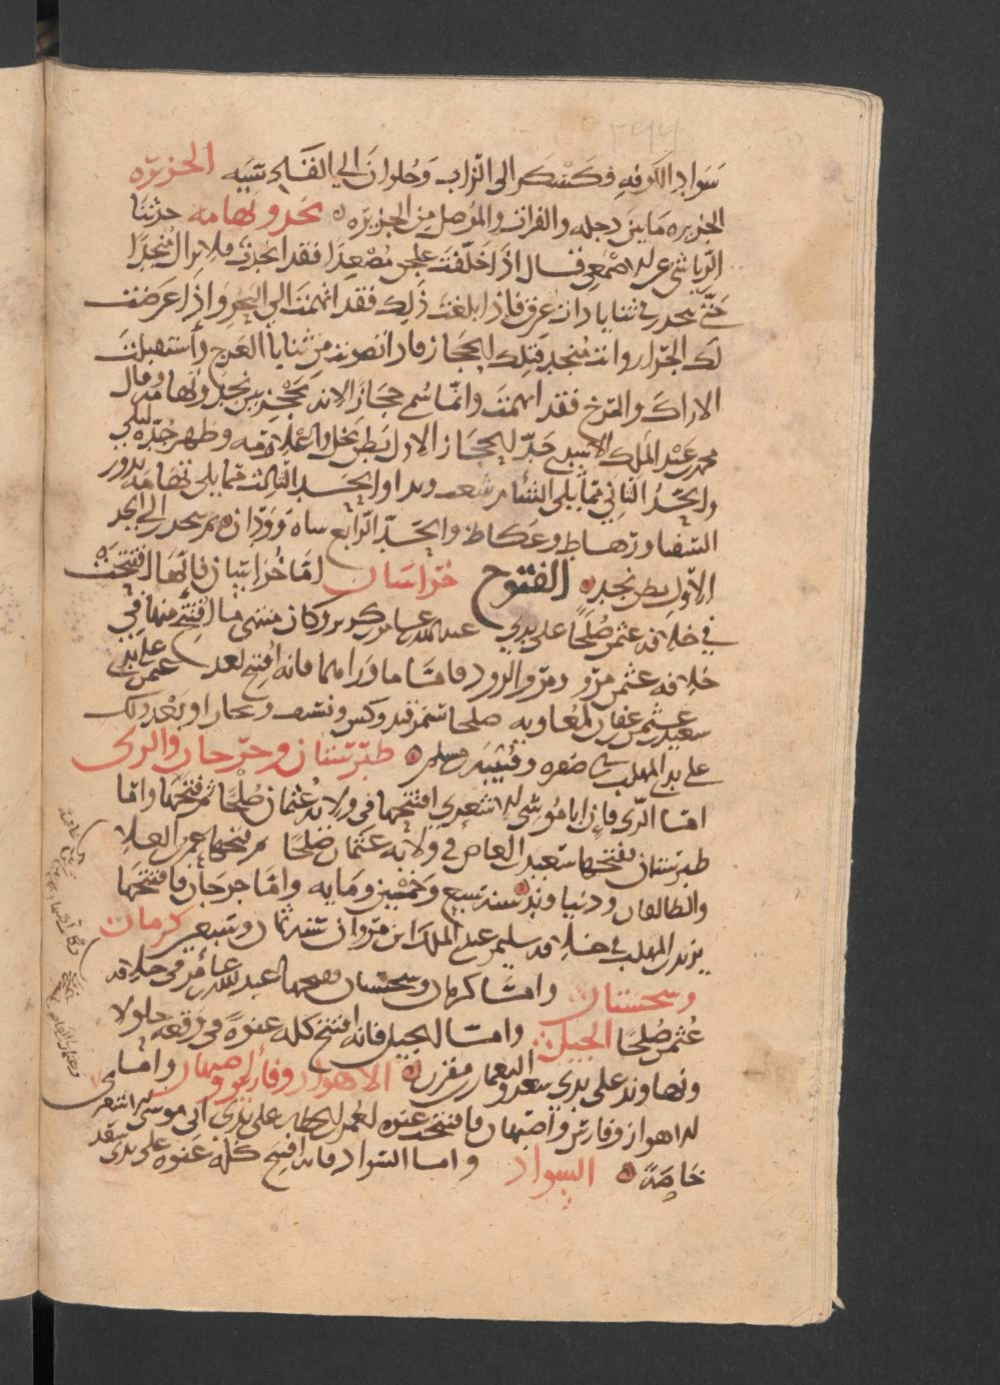 سواد الكوفه فكسكر الى الزاب وحلوان الى القادسيه الجزيره
الجزيره ما بين دجله والفرات والموصل من الجزيره ه نجد وتهامه حدثنا
الرياشي عن الاصمعي قال اذا خلفت عجلز مصعدا فقد انجدت فلا تزال منجدا
حتى تنحدر في ثنايا ذات عرق فاذا بلغت ذلك فقد اتهمت الى البحر واذا عرضت
لك الحرار وانت منجد فتلك الحجاز فاذا تصوبت من ثنايا العرج واستقبلت
الاراك والمرخ فقد اتهمت وانما سمى حجازا لانه حجز بين نجد وتهامه وقال
محمد بن عبد الملك الاسدي حد الحجاز الاول بطن نخل واعلا رمه وظهر حره ليلى
والحد الثاني مما يلي الشام شغب وبدا والحد الثالث مما يلي تهامه بدر و
السقيا ورهاط وعكاظ والحد الرابع سايه وودان ثم ينحدر الى الحد
الاول بطن نجد ه الفتوح خراسان اما خراسان فانها افتتحت
في خلافه عثمن صلحا على يدي عبد الله بن عامر بن كريز وكان منتهى ما افتتح منها في
خلافه عثمن مرو ومرو الروذ فاما ما وراهما فانه افتتح بعد عثمن على يد
سعيد بن عثمن بن عفان لمعاويه صلحا سمرقند وكس ونسف وبخارا وبعد ذلك
على يد المهلب بن ابي صفره وقتيبه بن مسلم ه طبرستان وجرجان والرى
اما الرى فان ابا موسى الاشعري افتتحها في ولايه عثمان صلحا ثم فتحها واما
طبرستان ففتحها سعيد بن العاص في ولايه عثمان صلحا ثم فتحها عمر بن العلا
والطالقان ودنباوند سنه سبع وخمسين ومايه واما جرجان فافتتحها
يزيد بن المهلب في خلافه سليمن بن عبد الملك ابن مروان سنه ثمان وتسعين كرمان
وسجستان واما كرمان وسجستان ففتحها عبد الله بن عامر في خلافه
عثمن صلحا الجبل واما الجبل فانه افتتح كله عنوة في وقعه جلولا
ونهاوند على يدي سعد والنعمان بن مقرن ه الاهواز وفارس واصبهان واما
الاهواز وفارس واصبهان فافتتحت عنوه لعمر بن الخطاب على يدى ابي موسى الاشعرى
خاصة ه السواد واما السواد فانه افتتح كله عنوه على يدى سعد